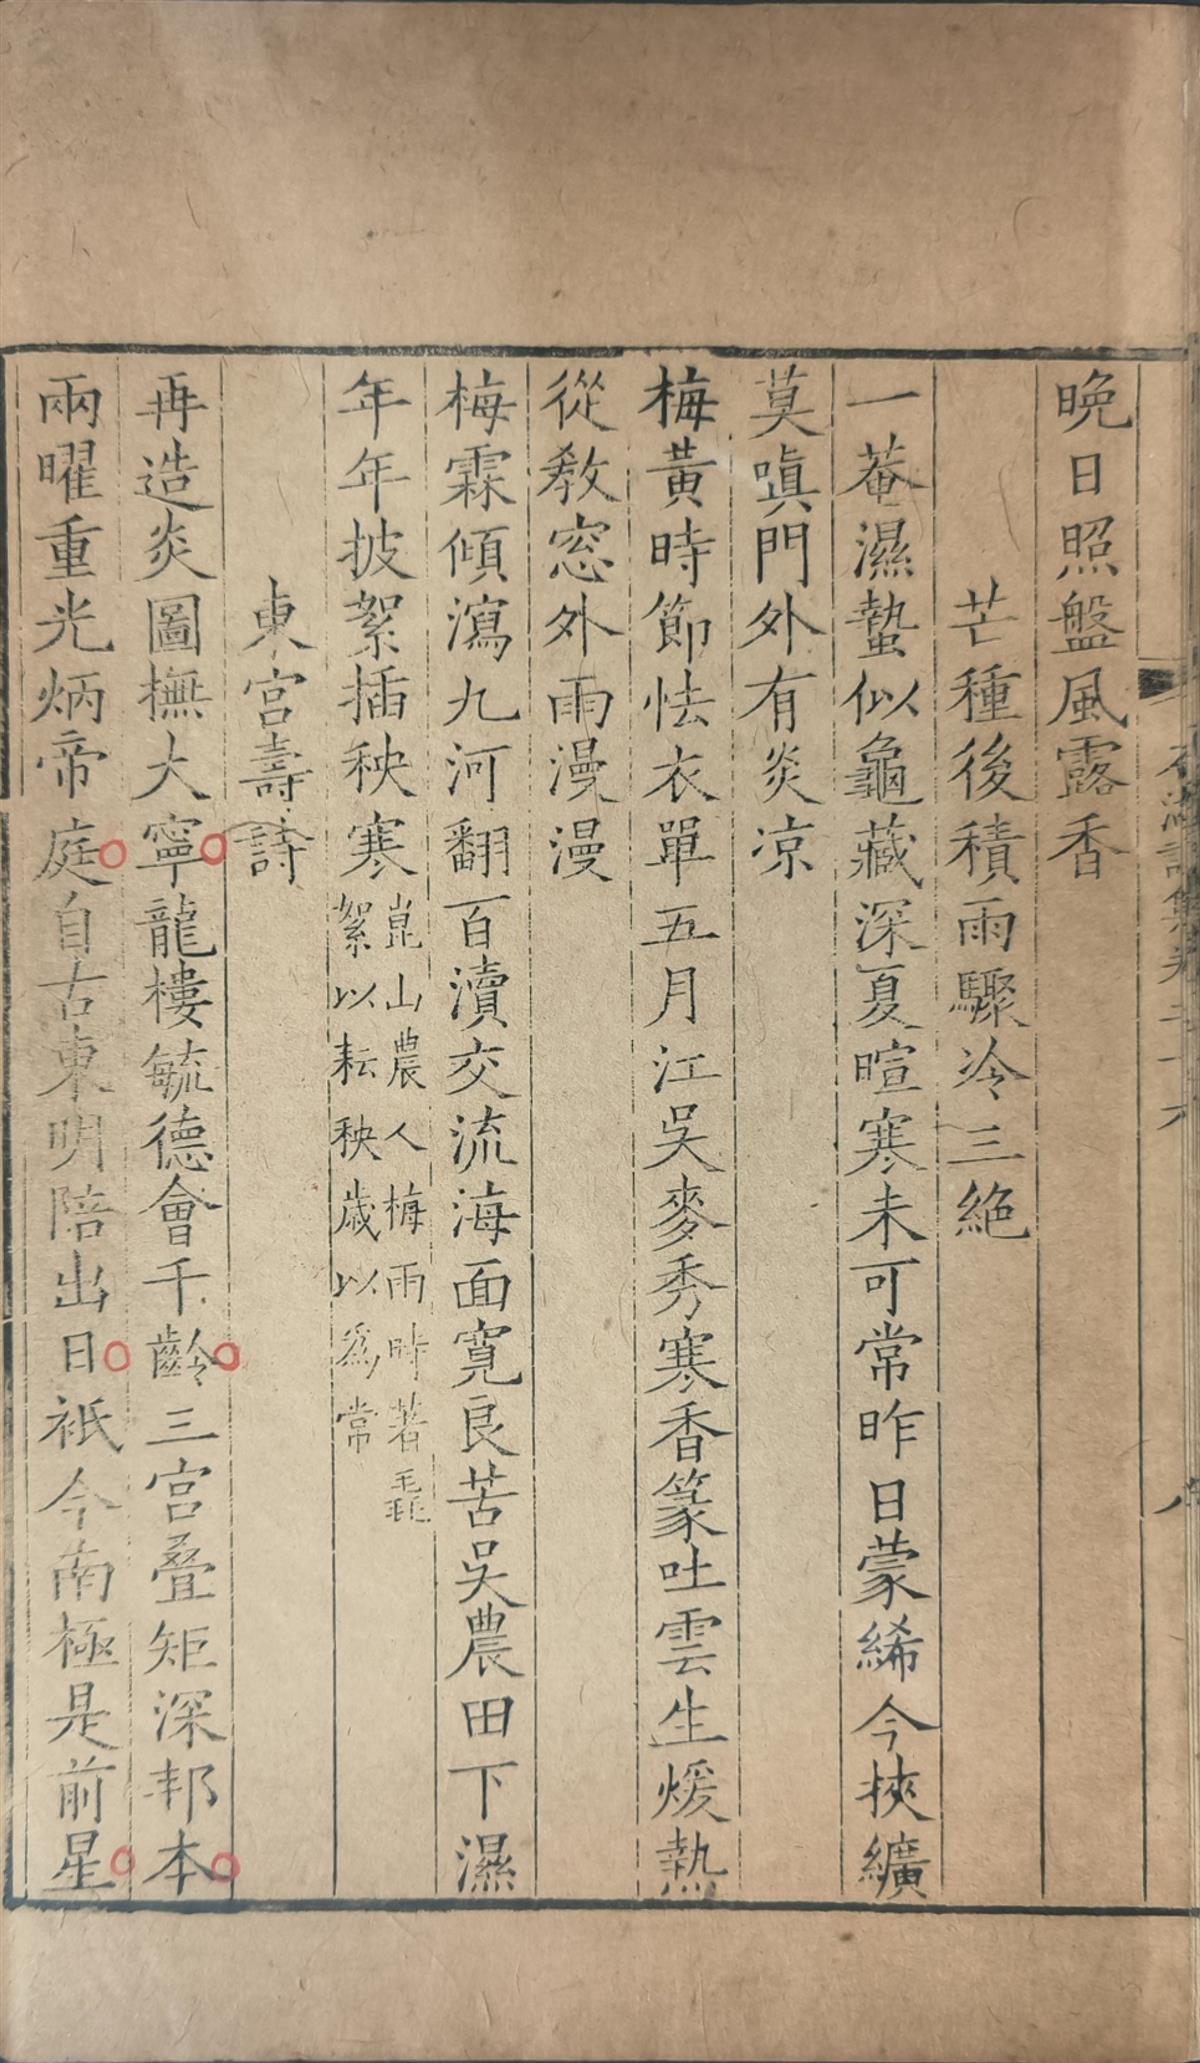 晩日照盤風露香
芒種後積雨驟冷三絶
一菴濕蟄似龜藏深夏暄寒未可常昨日蒙絺今挾纊
莫嗔門外有炎凉
梅黃時節怯衣單五月江吳麥秀寒香篆吐雲生煖熱
從教窓外雨漫漫
梅霖傾瀉九河翻百瀆交流海面寛良苦吳農田下濕
年年披絮插秧寒
崑山農人梅雨時著毳
絮以耘秧歳以爲常
東宮壽詩
再造炎圖撫大寧龍樓毓德會千齡三宮叠矩深邦本
兩曜重光炳帝庭自古東明陪出日祇今南極是前星